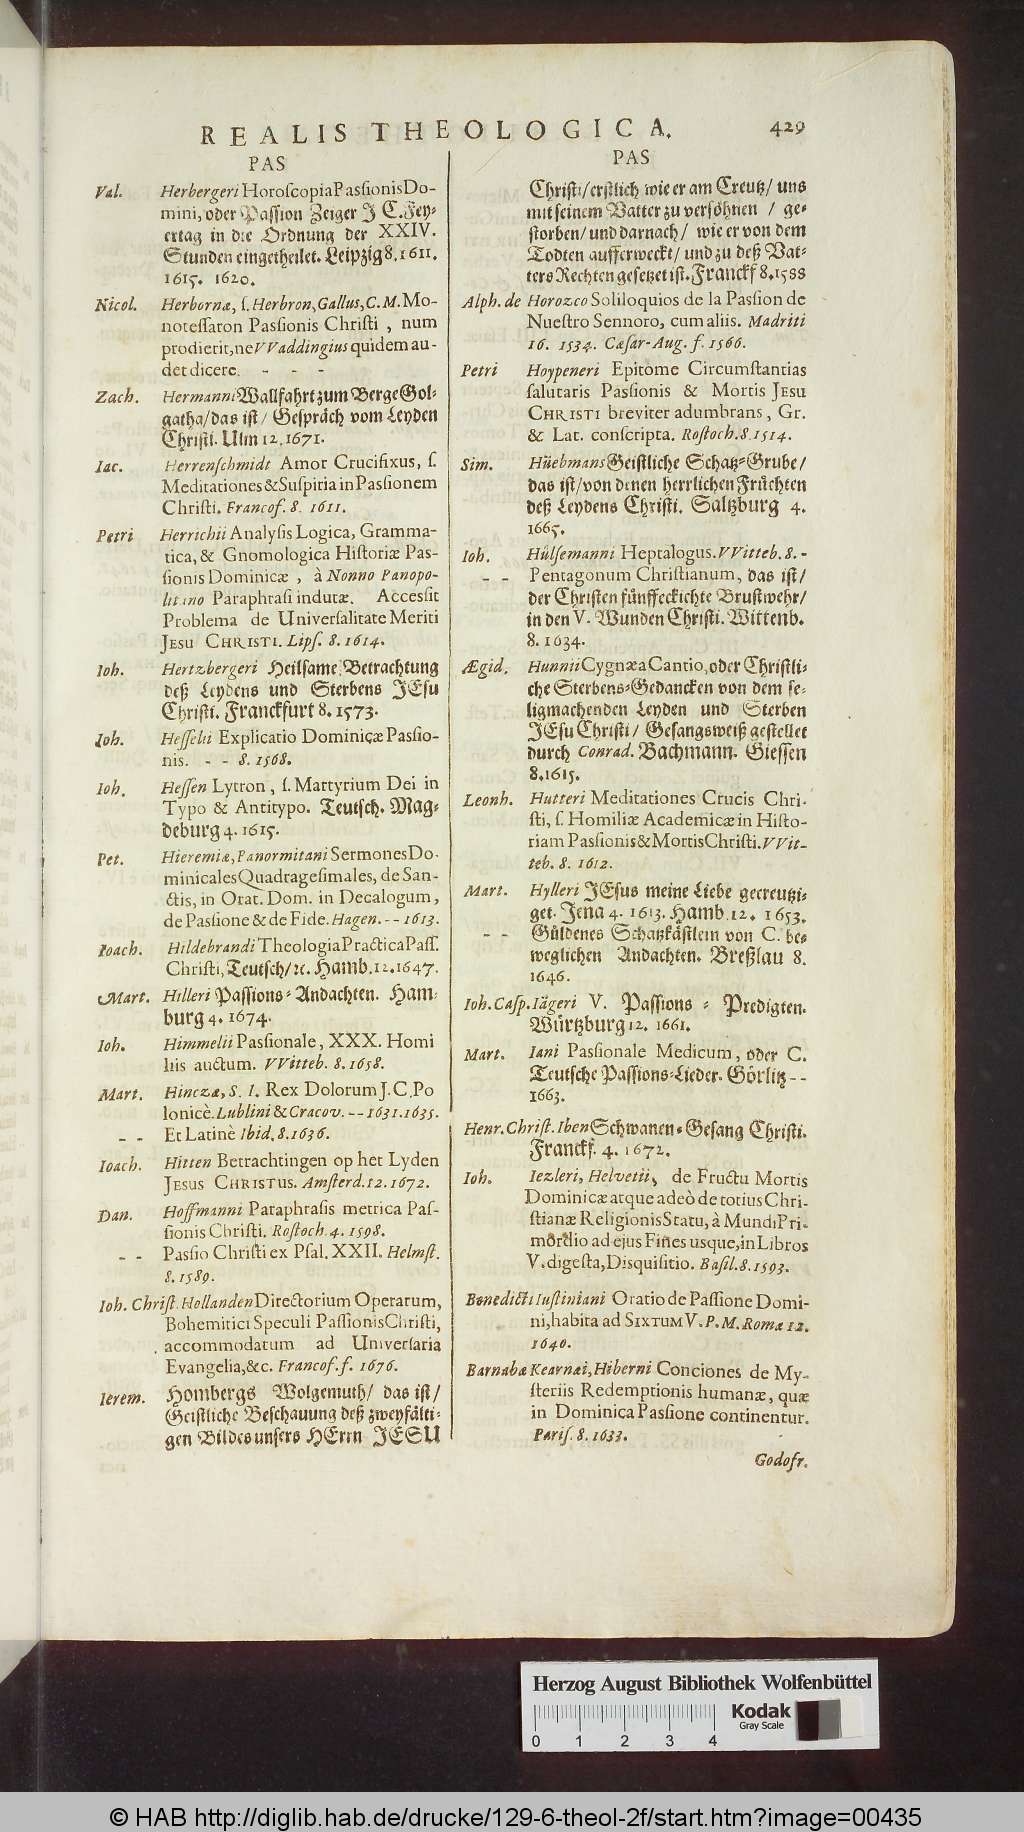 REALIS THEOLOGICA. 429
PAS
Val. Herbergeri Horoſcopia Paſſionis Do-
mini, oder Paſſion Zeiger J C. Fey-
ertag in die Ordnung der XXIV.
Stunden eingetheilet. Leipzig 8. 1611.
1615. 1620.
Nicol. Herbornæ, ſ. Herbron, Gallus, C. M. Mo-
noteſſaron Paſſionis Chriſti, num
prodierit, ne VVaddingius quidem au-
det dicere. - - -
Zach. Hermanni Wallfahrt zum Berge Gol-
gatha/ das iſt/ Geſpräch vom Leyden
Chriſti. Ulm 12. 1671.
Iac. Herrenſchmidt Amor Crucifixus, ſ.
Meditationes & Suſpiria in Paſſionem
Chriſti. Francof. 8. 1611.
Petri Herrichii Analyſis Logica, Gramma-
tica, & Gnomologica Hiſtoriæ Paſ-
ſionis Dominicæ, à Nonno Panopo-
litano Paraphraſi indutæ. Acceſſit
Problema de Univerſalitate Meriti
JESU CHRISTI. Lipſ. 8. 1614.
Ioh. Hertzbergeri Heilſame Betrachtung
deß Leydens und Sterbens JEſu
Chriſti. Franckfurt 8. 1573.
Ioh. Heſſelii Explicatio Dominicæ Paſſio-
nis. - - 8. 1568.
Ioh. Heſſen Lytron, ſ. Martyrium Dei in
Typo & Antitypo. Teutſch. Mag-
deburg 4. 1615.
Pet. Hieremiæ, Panormitani Sermones Do-
minicales Quadrageſimales, de San-
ctis, in Orat. Dom. in Decalogum,
de Paſſione & de Fide. Hagen. - - 1613.
Ioach. Hildebrandi Theologia Practica Paſſ.
Chriſti, Teutſch/ ꝛc. Hamb. 12. 1647.
Mart. Hilleri Paſſions-Andachten. Ham-
burg 4. 1674.
Ioh. Himmelii Paſſionale, XXX. Homi
liis auctum. VVitteb. 8. 1658.
Mart. Hinczæ, S. I. Rex Dolorum J. C. Po
lonicè. Lublini & Cracov. - - 1631. 1635.
- - Et Latinè Ibid. 8. 1636.
Ioach. Hitten Betrachtingen op het Lyden
JESUS CHRISTUS. Amſterd. 12. 1672.
Dan. Hoffmanni Paraphraſis metrica Paſ-
ſionis Chriſti. Roſtoch. 4. 1598.
- - Paſſio Chriſti ex Pſal. XXII. Helmſt.
8. 1589.
Ioh. Chriſt. Hollanden Directorium Operarum,
Bohemitici Speculi Paſſionis Chriſti,
accommodatum ad Univerſaria
Evangelia, &c. Francof. f. 1676.
Ierem. Hombergs Wolgemuth/ das iſt/
Geiſtliche Beſchauung deß zweyfälti-
gen Bildes unſers HErrn JESU
PAS
Chriſti/ erſtlich wie er am Creutz/ uns
mit ſeinem Vatter zu verſöhnen / ge-
ſtorben/ und darnach/ wie er von dem
Todten aufferweckt/ und zu deß Vat-
ters Rechten geſetzet iſt. Franckf 8. 1588
Alph. de Horozco Soliloquios de la Paſſion de
Nueſtro Sennoro, cum aliis. Madriti
16. 1534. Cæſar-Aug. f. 1566.
Petri Hoypeneri Epitome Circumſtantias
ſalutaris Paſſionis & Mortis JESU
CHRISTI breviter adumbrans, Gr.
& Lat. conſcripta. Roſtoch. 8. 1514.
Sim. Hüebmans Geiſtliche Schatz-Grube/
das iſt/ von denen herrlichen Früchten
deß Leydens Chriſti. Saltzburg 4.
1665.
Ioh. Hülſemanni Heptalogus. VVitteb. 8. -
- - Pentagonum Chriſtianum, das iſt/
der Chriſten fünffeckichte Bruſtwehr/
in den V. Wunden Chriſti. Wittenb.
8. 1634.
Ægid. Hunnii Cygnæa Cantio, oder Chriſtli-
che Sterbens-Gedancken von dem ſe-
ligmachenden Leyden und Sterben
JEſu Chriſti/ Geſangsweiß geſtellet
durch Conrad. Bachmann. Gieſſen
8. 1615.
Leonh. Hutteri Meditationes Crucis Chri-
ſti, ſ. Homiliæ Academicæ in Hiſto-
riam Paſſionis & Mortis Chriſti. VVit-
teb. 8. 1612.
Mart. Hylleri JEſus meine Liebe gecreutzi-
get. Jena 4. 1613. Hamb. 12. 1653.
- - Güldenes Schatzkäſtlein von C. be-
weglichen Andachten. Breßlau 8.
1646.
Ioh. Caſp. Iägeri V. Paſſions - Predigten.
Würtzburg 12. 1661.
Mart. Iani Paſſionale Medicum, oder C.
Teutſche Paſſions-Lieder. Görlitz - -
1663.
Henr. Chriſt. Iben Schwanen-Geſang Chriſti.
Franckf. 4. 1672.
Ioh. Iezleri, Helvetii, de Fructu Mortis
Dominicæ atque adeò de totius Chri-
ſtianæ Religionis Statu, à Mundi Pri-
mordio ad ejus Fines usque, in Libros
V. digeſta, Disquiſitio. Baſil. 8. 1593.
Benedicti Iuſtiniani Oratio de Paſſione Domi-
ni, habita ad SIXTUM V. P. M. Romæ 12.
1640.
Barnabæ Kearnæi, Hiberni Conciones de My-
ſteriis Redemptionis humanæ, quæ
in Dominica Paſſione continentur.
Pariſ. 8. 1633.
Godofr.
Herzog August Bibliothek Wolfenbüttel
0 1 2 3 4
Kodak
Gray Scale
© HAB http://diglib.hab.de/drucke/129-6-theol-2f/start.htm?image=00435